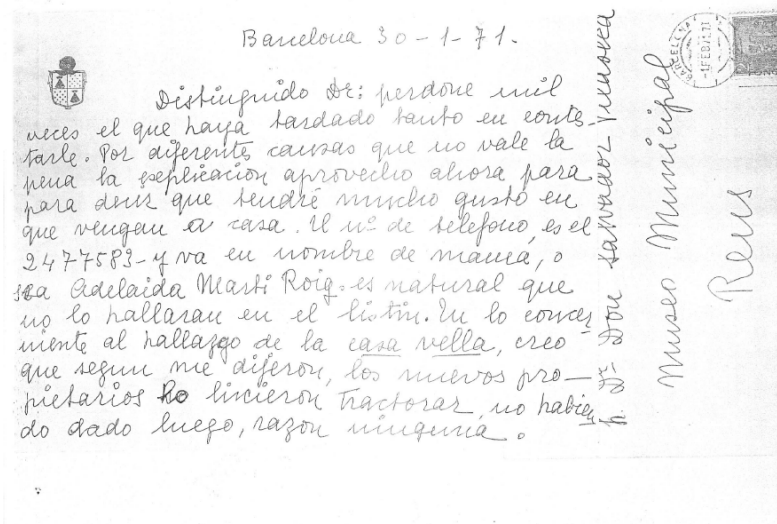 Barcelona 30-1-71.
Distinguido Dr: perdone mil
veces el que haya tardado tanto en contes-
tarle. Por diferentes causas que no vale la
pena la explicación aprovecho ahora para
para decir que tendré mucho gusto en
que vengan a casa. El nº de telefono, es el
2477583- y va en nombre de mamá, o
sea Adelaida Marti Roig = es natural que
no lo hallaran en el listin. En lo concer
niente al hallazgo de la casa vella, creo
que segun me dijeron, los nuevos pro-
pietarios lo hicieron tractorar, no habien
do dado luego, razon ninguna.
Dr. Don Salvador
Museo Municipal
Reus
BARCELONA
-1FEB71